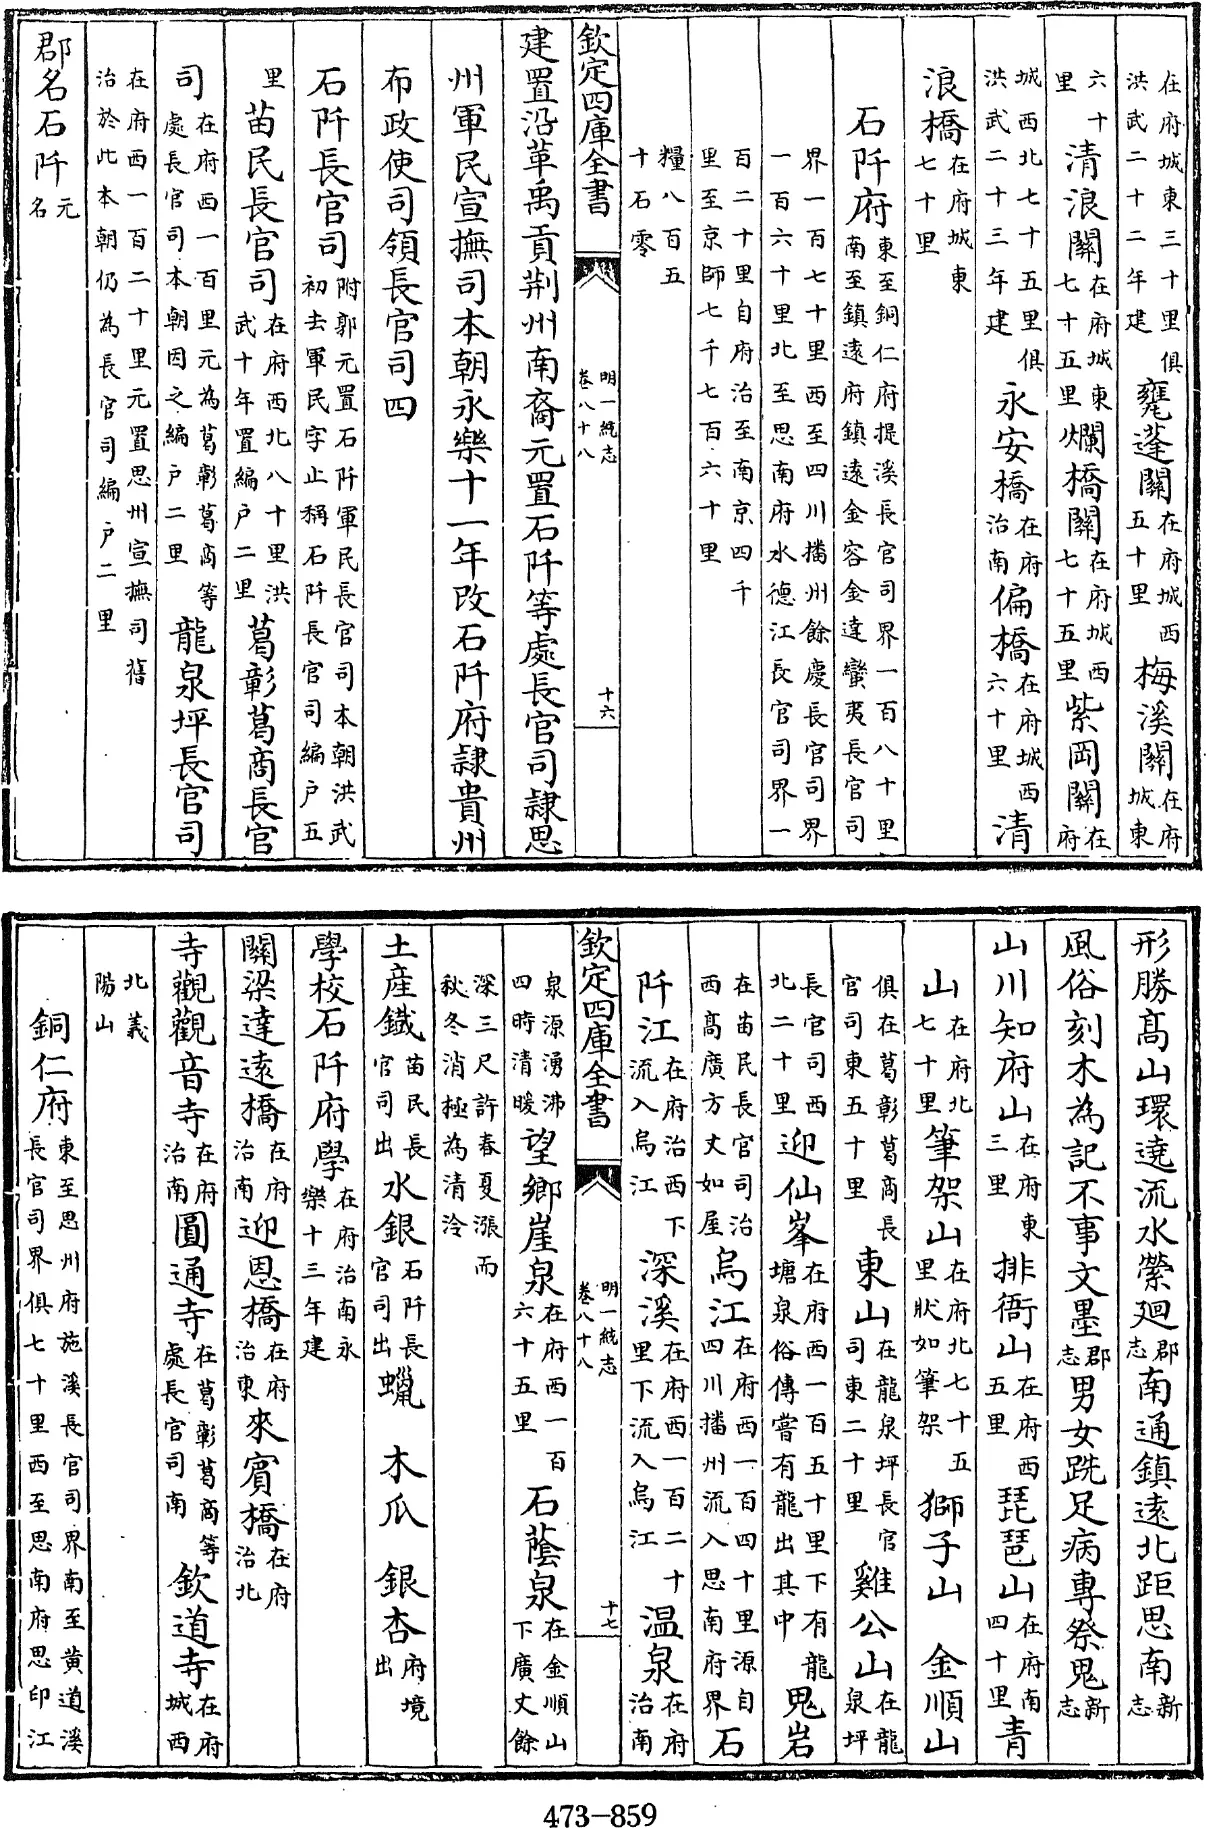 在府城東三十里俱洪武二十二年建甕蓬關在府城西五十里梅溪關在府城東
六十里清浪關在府城東七十五里爛橋關在府城西七十五里紫岡關在府
城西北七十五里俱洪武二十三年建永安橋在府治南偏橋在府城西六十里清
浪橋在府城東七十里
石阡府東至銅仁府提溪長官司界一百八十里南至鎮遠府鎮遠金容金達蠻夷長官司
界一百七十里西至四川播州餘慶長官司界一百六十里北至思南府水德江長官司界一
百二十里自府治至南京四千里至京師七千七百六十里
糧八百五十石零
欽定四庫全書
明一統志
卷八十八
十六
建置沿革禹貢荆州南裔元置石阡等處長官司隷思
州軍民宣撫司本朝永樂十一年改石阡府隷貴州
布政使司領長官司四
石阡長官司附郭元置石阡軍民長官司本朝洪武初去軍民字止稱石阡長官司編户五
里苗民長官司在府西北八十里洪武十年置編户二里葛彰葛商長官
司在府西一百里元為葛彰葛商等處長官司本朝因之編户二里龍泉坪長官司
在府西一百二十里元置思州宣撫司舊治於此本朝仍為長官司編户二里
郡名石阡元名
形勝髙山環遶流水縈廻郡志南通鎮遠北距思南新志
風俗刻木為記不事文墨郡志男女跣足病專祭鬼新志
山川知府山在府東三里排衙山在府西五里琵琶山在府南四十里青
山在府北七十里筆架山在府北七十五里狀如筆架獅子山金順山
俱在葛彰葛商長官司東五十里東山在龍泉坪長官司東二十里雞公山在龍泉坪
長官司西北二十里迎仙峯在府西一百五十里下有龍塘泉俗傳嘗有龍出其中鬼岩
在苗民長官司治西髙廣方丈如屋烏江在府西一百四十里源自四川播州流入思南府界石
阡江在府治西下流入烏江深溪在府西一百二十里下流入烏江温泉在府治南
欽定四庫全書
明一統志
卷八十八
十七
泉源湧沸四時清暖望鄉崖泉在府西一百六十五里石蔭泉在金順山下廣丈餘
深三尺許春夏漲而秋冬消極為清泠
土産鐵苗民長官司出水銀石阡長官司出蠟木瓜銀杏府境出
學校石阡府學在府治南永樂十三年建
關梁達遠橋在府治南迎恩橋在府治東來賓橋在府治北
寺觀觀音寺在府治南圓通寺在葛彰葛商等處長官司南欽道寺在府城西
北義陽山
銅仁府東至思州府施溪長官司界南至黄道溪長官司界俱七十里西至思南府思印江
473-859